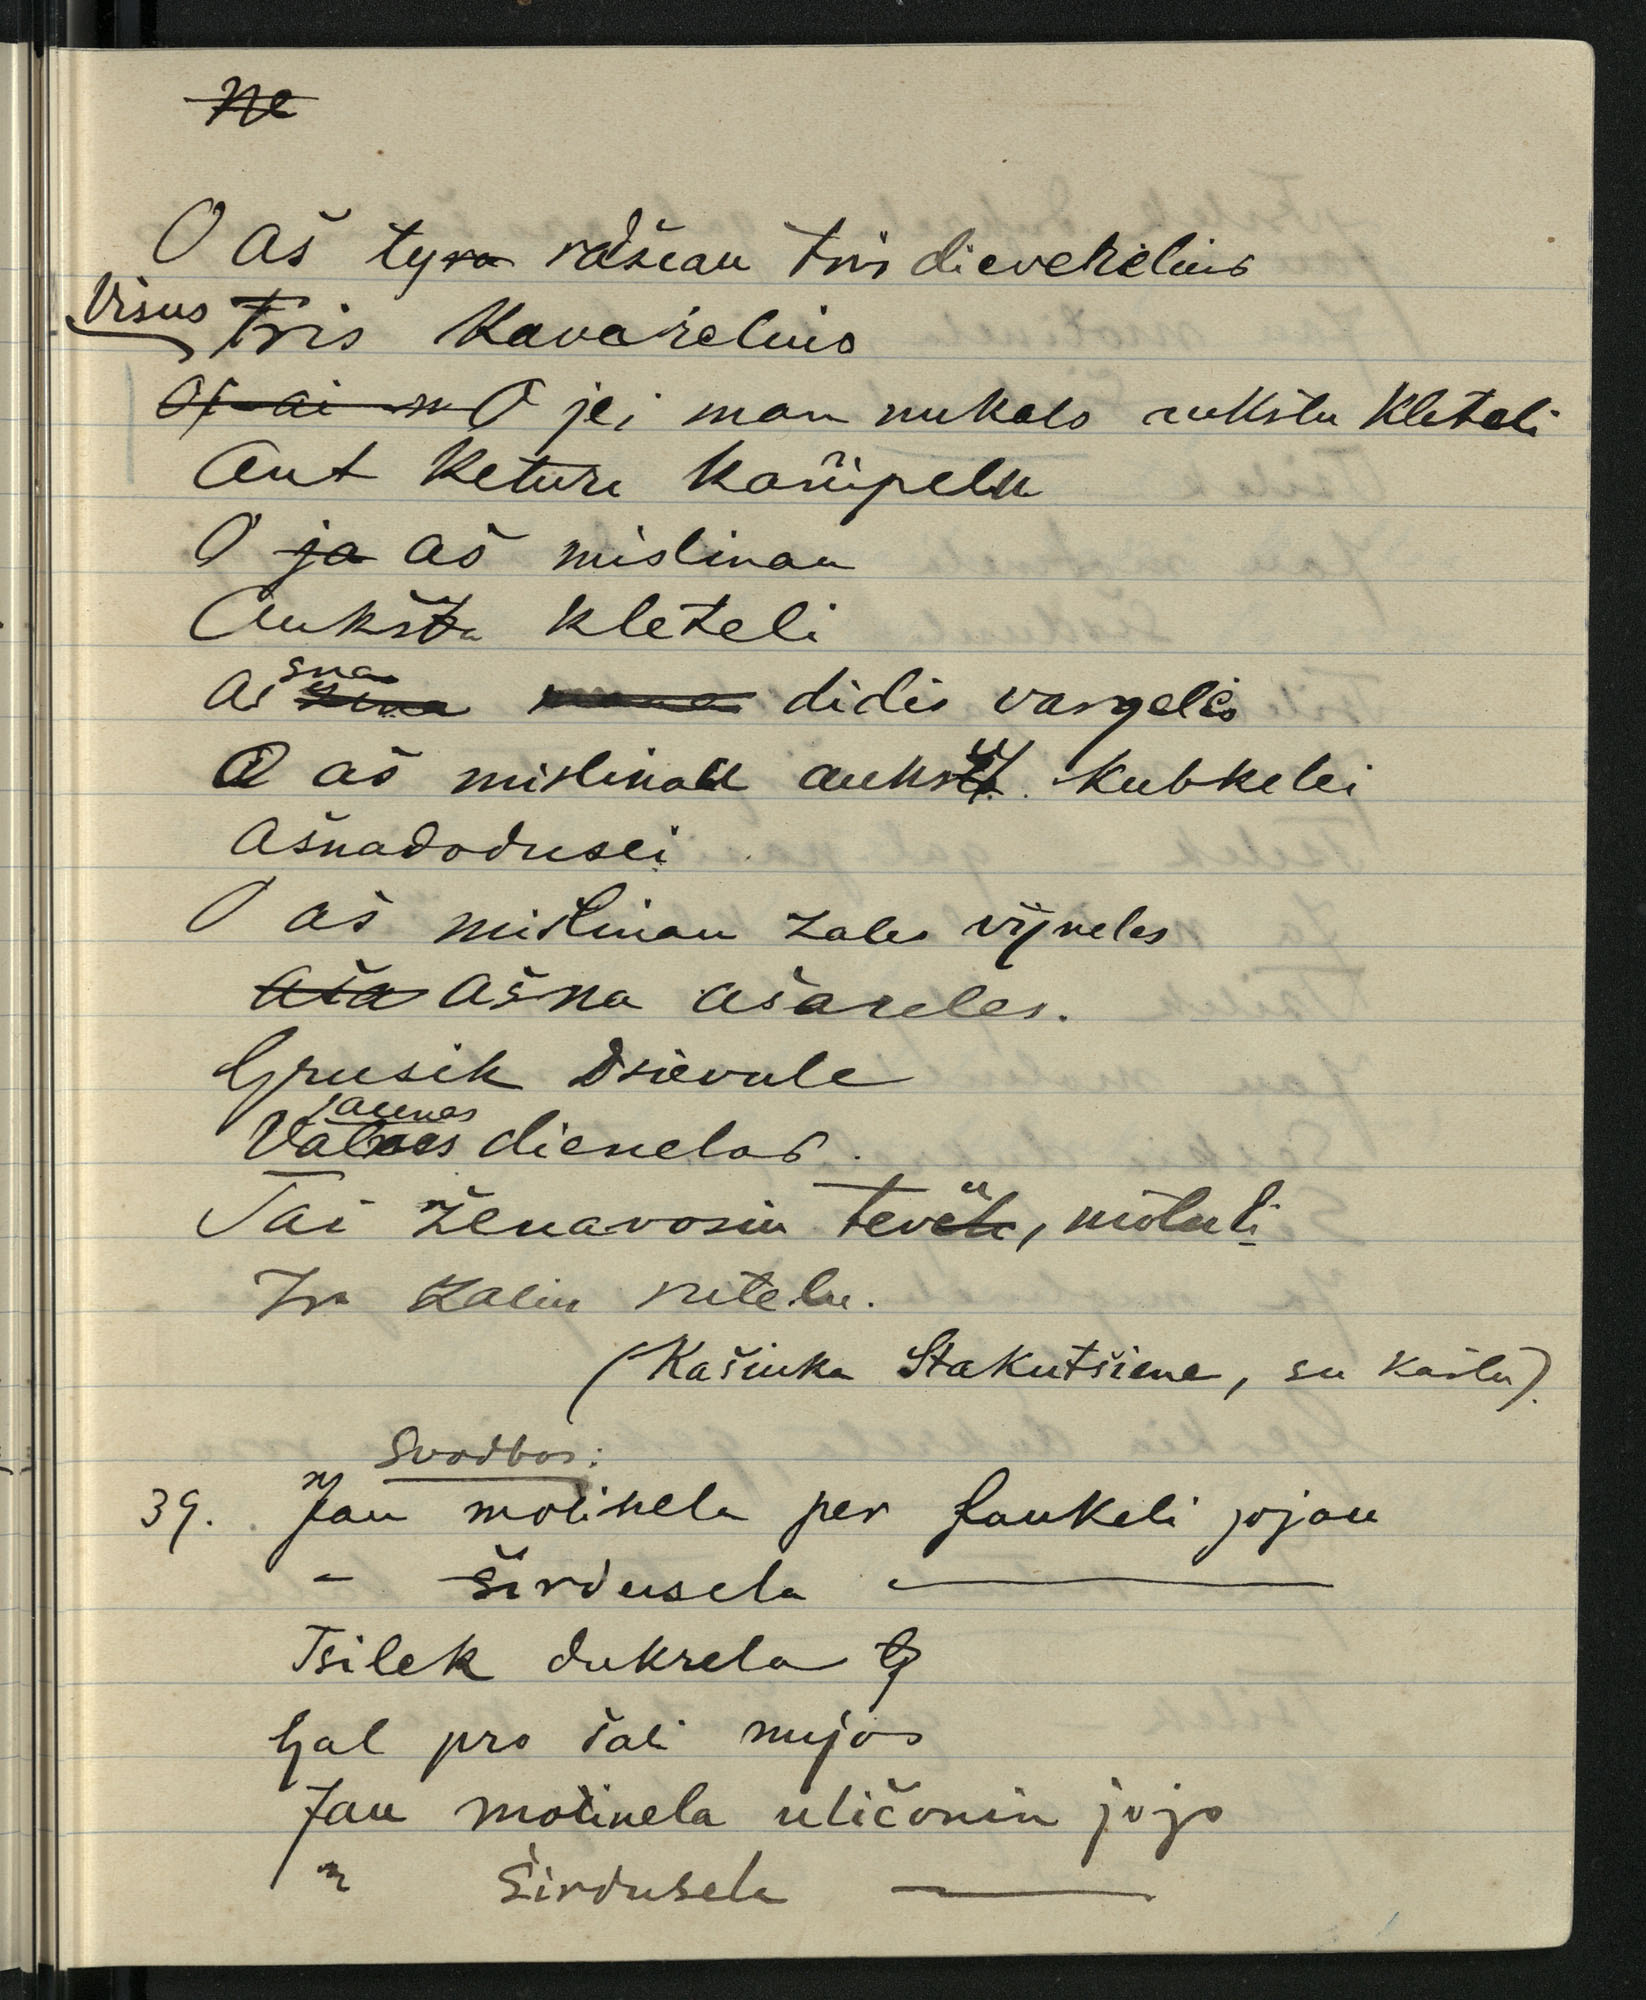 Ne
O aš tyra rašeau tris dieverelius
Visus Tris Kavarelius
O jei man nukals aukštu kleteli
Ant keturu kampelu
O ja aš mislinau
Aukšta kleteli
As sna didis vargelis
O aš mislinau aukšt kubkelei
Ašnadodusei
O aš mislinau zales vijneles
aša ašna ašareles.
Grusik Dsievule
Valnas jaunas dienelas.
Tai ženavosiu tevu, motuli
Zu zaliu rutelu.
(Kašiuka Stakutšiene, su Kastu).
Svodbos:
39. Jau motinela per laukeli jojau
- Širdusela —
Tsilek dukrela
Gal pro šali nujos
Jau motinela uličoniu jojo
" Širdusela —